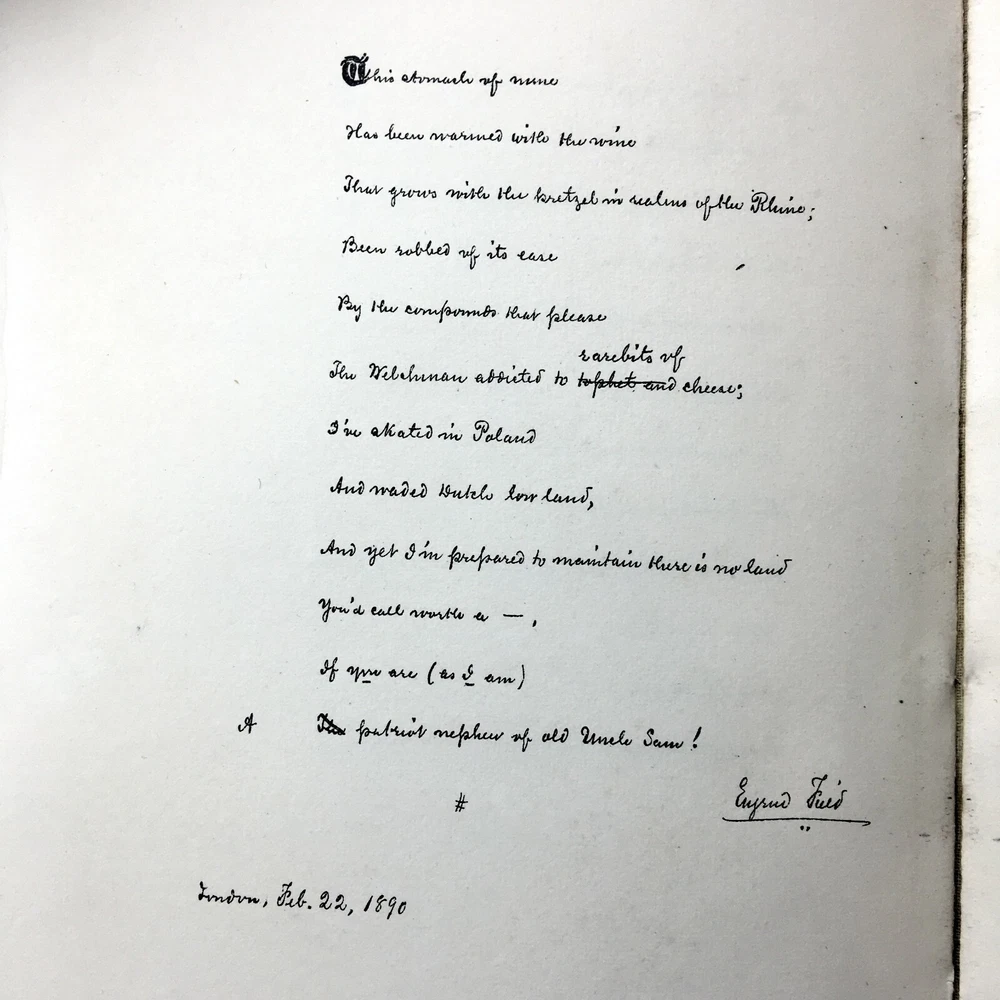 This stomach of mine
Has been warmed with the wine
That grows with the kretzel in realms of the Rhine;
Been robbed of its ease
By the compounds that please
rarebits of
The Welshman addicted to tophet and cheese;
I've skated in Poland
And waded Dutch low land,
And yet I'm prepared to maintain there is no land
You'd call worth a —,
If you are (as I am)
A The patriot nephew of old Uncle Sam!
Eugene Field
#
London, Feb. 22, 1890